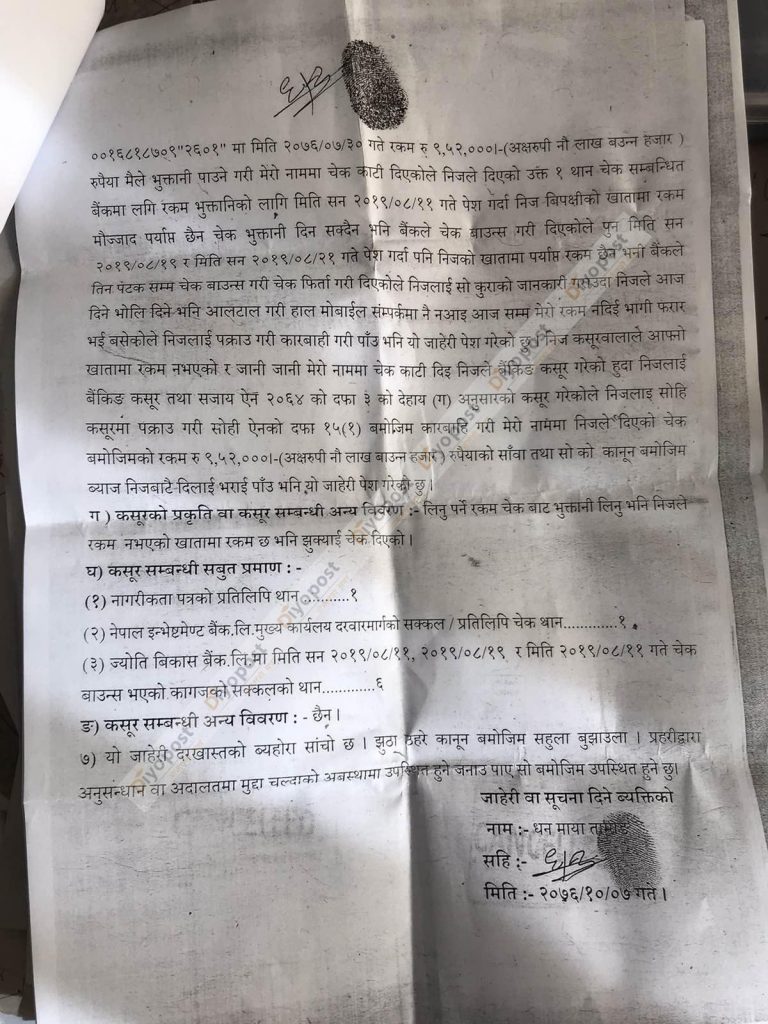 ००१६८१८७०९"२६०१" मा मिति २०७६/०७/३० गते रकम रु ९,५२,०००।-(अक्षरुपी नौ लाख बाउन्न हजार )
रुपैया मैले भुक्तानी पाउने गरी मेरो नाममा चेक काटी दिएकोले निजले दिएको उक्त १ थान चेक सम्बन्धित
बैंकमा लगि रकम भुक्तानिको लागि मिति सन २०१९/०८/११ गते पेश गर्दा निज बिपक्षीको खातामा रकम
मौज्जाद पर्याप्त छैन चेक भुक्तानी दिन सक्दैन भनि बैंकले चेक बाउन्स गरी दिएकोले पुन मिति सन
२०१९/०८/१९ र मिति सन २०१९/०८/२१ गते पेश गर्दा पनि निजको खातामा पर्याप्त रकम छैन भनी बैंकले
तिन पंटक सम्म चेक बाउन्स गरी चेक फिर्ता गरी दिएकोले निजलाई सो कुराको जानकारी गराउदा निजले आज
दिने भोलि दिने भनि आलटाल गरी हाल मोबाईल संम्पर्कमा नै नआइ आज सम्म मेरो रकम नदिई भागी फरार
भई बसेकोले निजलाई पक्राउ गरी कारबाही गरी पाँउ भनि यो जाहेरी पेश गरेको छु । निज कसूरवालाले आफ्नो
खातामा रकम नभएको र जानी जानी मेरो नाममा चेक काटी दिइ निजले बैंकिङ कसूर गरेको हुदा निजलाई
बैंकिङ कसूर तथा सजाय ऐन २०६४ को दफा ३ को देहाय (ग) अनुसारको कसूर गरेकोले निजलाइ सोहि
कसूरमा पक्राउ गरी सोही ऐनको दफा १५(१) बमोजिम कारबाहि गरी मेरो नाममा निजले दिएको चेक
बमोजिमको रकम रु ९,५२,०००।-(अक्षरुपी नौ लाख बाउन्न हजार ) रुपैयाको साँवा तथा सो को कानून बमोजिम
ब्याज निजबाटै दिलाई भराई पाँउ भनि यो जाहेरी पेश गरेको छु ।
ग ) कसूरको प्रकृति वा कसूर सम्बन्धी अन्य विवरण :- लिनु पर्ने रकम चेक बाट भुक्तानी लिनु भनि निजले
रकम नभएको खातामा रकम छ भनि झुक्याई चेक दिएको ।
घ) कसूर सम्बन्धी सबुत प्रमाण : -
(१) नागरीकता पत्रको प्रतिलिपि थान ..........१
(२) नेपाल इन्भेष्टमेण्ट बैंक.लि.मुख्य कार्यलय दरवारमार्गको सक्कल / प्रतिलिपि चेक थान.............१
(३) ज्योति बिकास बैंक.लि.मा मिति सन २०१९/०८/११, २०१९/०८/१९ र मिति २०१९/०८/११ गते चेक
बाउन्स भएको कागजको सक्कलको थान............६
ङ) कसूर सम्बन्धी अन्य विवरण : - छैन ।
७) यो जाहेरी दरखास्तको ब्यहोरा साँचो छ । झुठा ठहरे कानून बमोजिम सहुला बुझाउला । प्रहरीद्वारा
अनुसन्धान वा अदालतमा मुद्दा चल्दाको अबस्थामा उपस्थित हुने जनाउ पाए सो बमोजिम उपस्थित हुने छु।
जाहेरी वा सूचना दिने ब्यक्तिको
नाम :- धन माया
सहि :-
मिति :- २०७६/१०/०७ गते ।
Diyopost
Diyopost
Diyopost
Diyopost
Diyopost
Diyopost